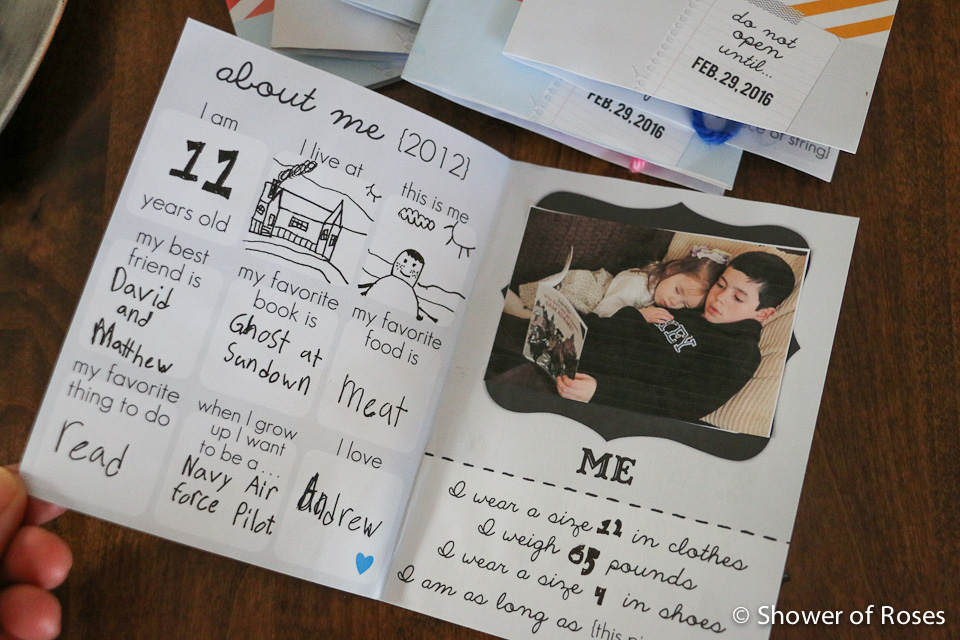 about me {2012}
I am
11
years old
I live at
this is me
my best
friend is
David
and
Matthew
my favorite
book is
Ghost at
Sundown
my favorite
food is
meat
my favorite
thing to do
read
when I grow
up I want
to be a...
Navy Air
force Pilot
I love
Andrew
ME
I wear a size 11 in clothes
I weigh 65 pounds
I wear a size 4 in shoes
I am as long as {this pi
do not
open
until...
FEB.29,2016
FEB.29,2016
ce or string}
© Shower of Roses